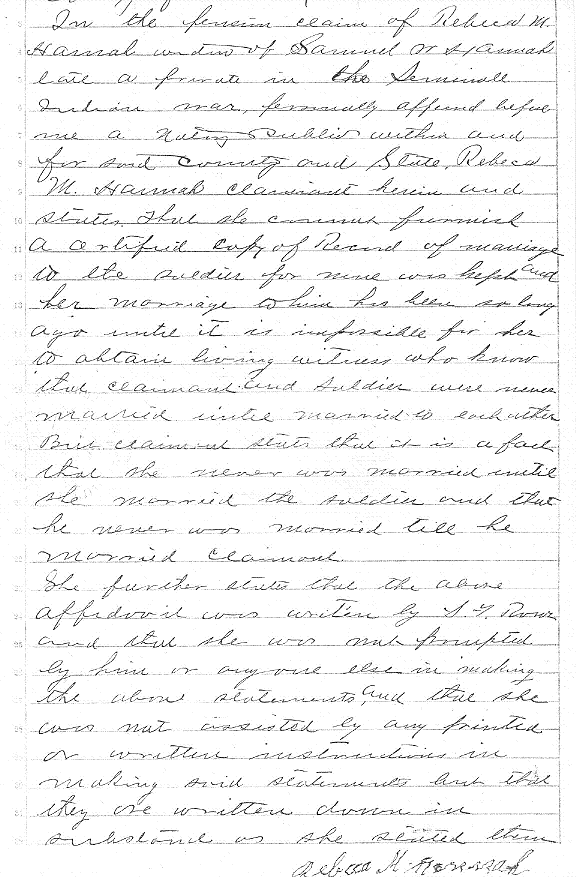 In the pension claim of Rebeca M.
Hannah widow of Samuel W Hannah
late a private in the Seminole
Indian war, personally appeared before
me a Notary Public within and
for said County and State, Rebeca
M. Hannah claimant herein and
states. That she cannot furnish
a certified copy of Record of marriage
to the soldier for none was kept and
her marriage to him has been so long
ago until it is impossible for her
to obtain living witness who know
that claimant and soldier were never
married until married to each other
But claimant states that it is a fact
that she never was married until
she married the soldier and that
he never was married till he
married claimant.
She further states that the above
affidavit was written by
and that she was not prompted
by him or anyone else in making
the above statements, and that she
was not assisted by any printed
or written instructions in
making said statements but that
they are written down in
substance as she stated them
Rebeca M. Hannah